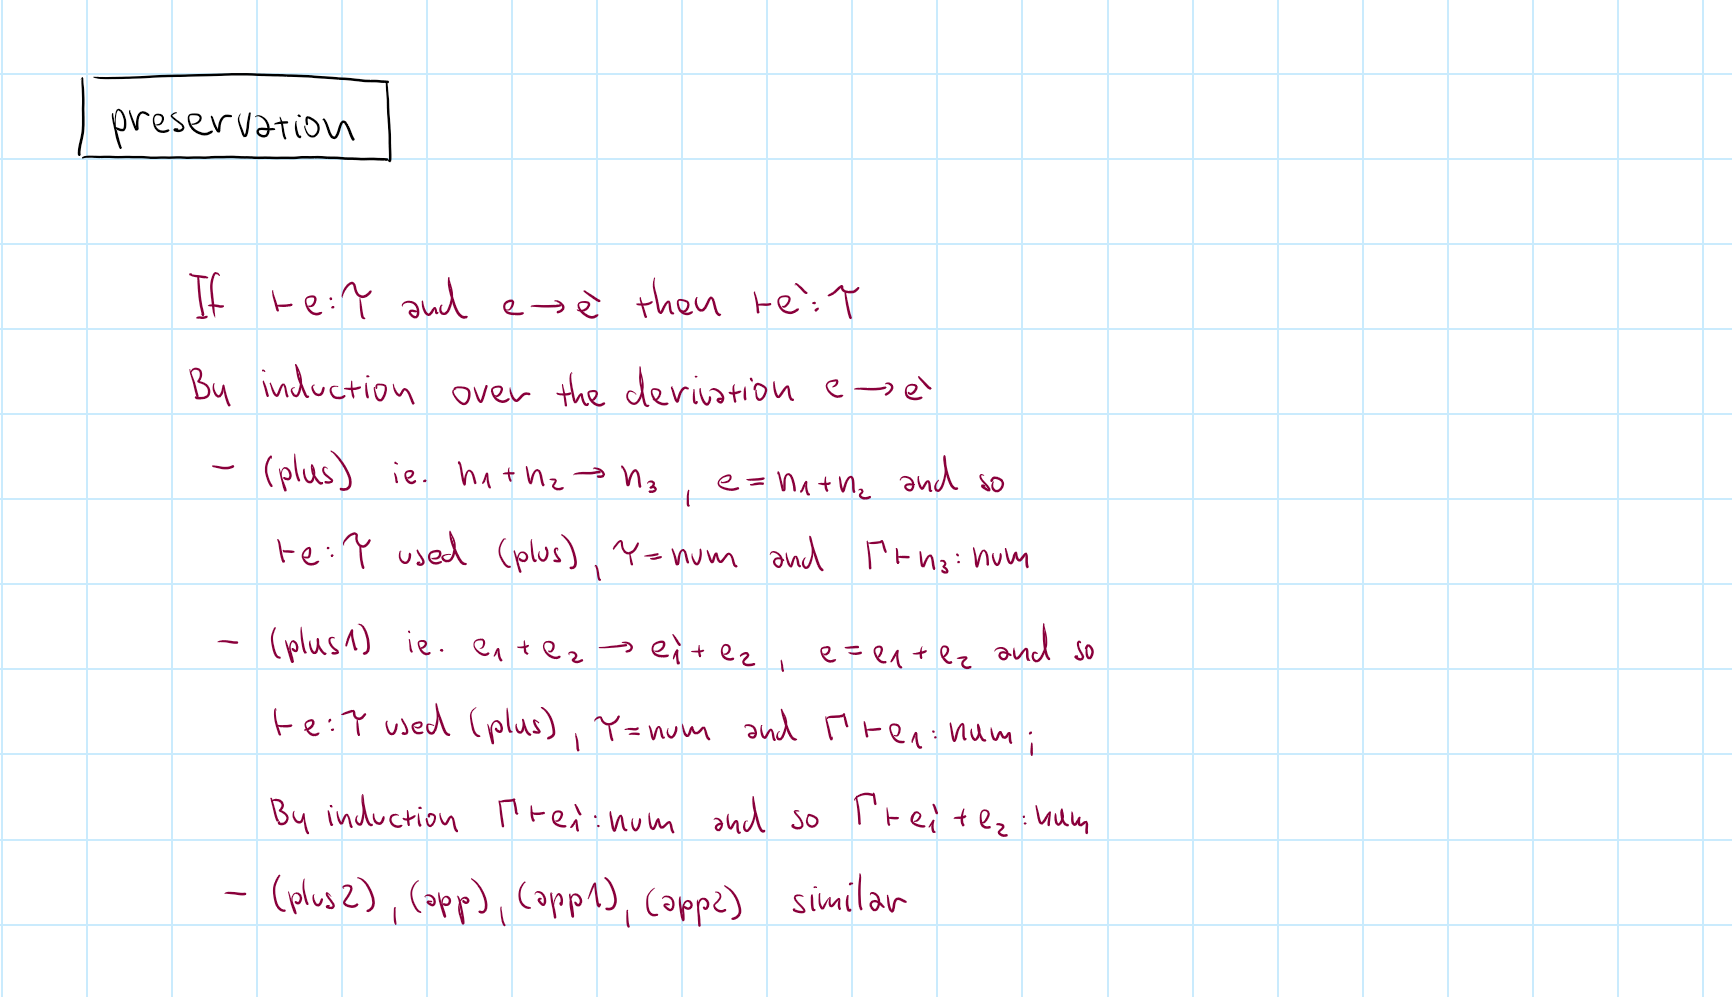 preservation
If ⊢e:τ and e→e` then ⊢e`:τ
By induction over the derivation e→e`
- (plus) ie. n₁+n₂→n₃, e=n₁+n₂ and so
⊢e:τ used (plus), τ=num and Γ⊢n₃:num
- (plus1) ie. e₁+e₂→e₁`+e₂, e=e₁+e₂ and so
⊢e:τ used (plus), τ=num and Γ⊢e₁:num;
By induction Γ⊢e₁`:num and so Γ⊢e₁`+e₂:num
- (plus2), (app), (app1), (app2) similar